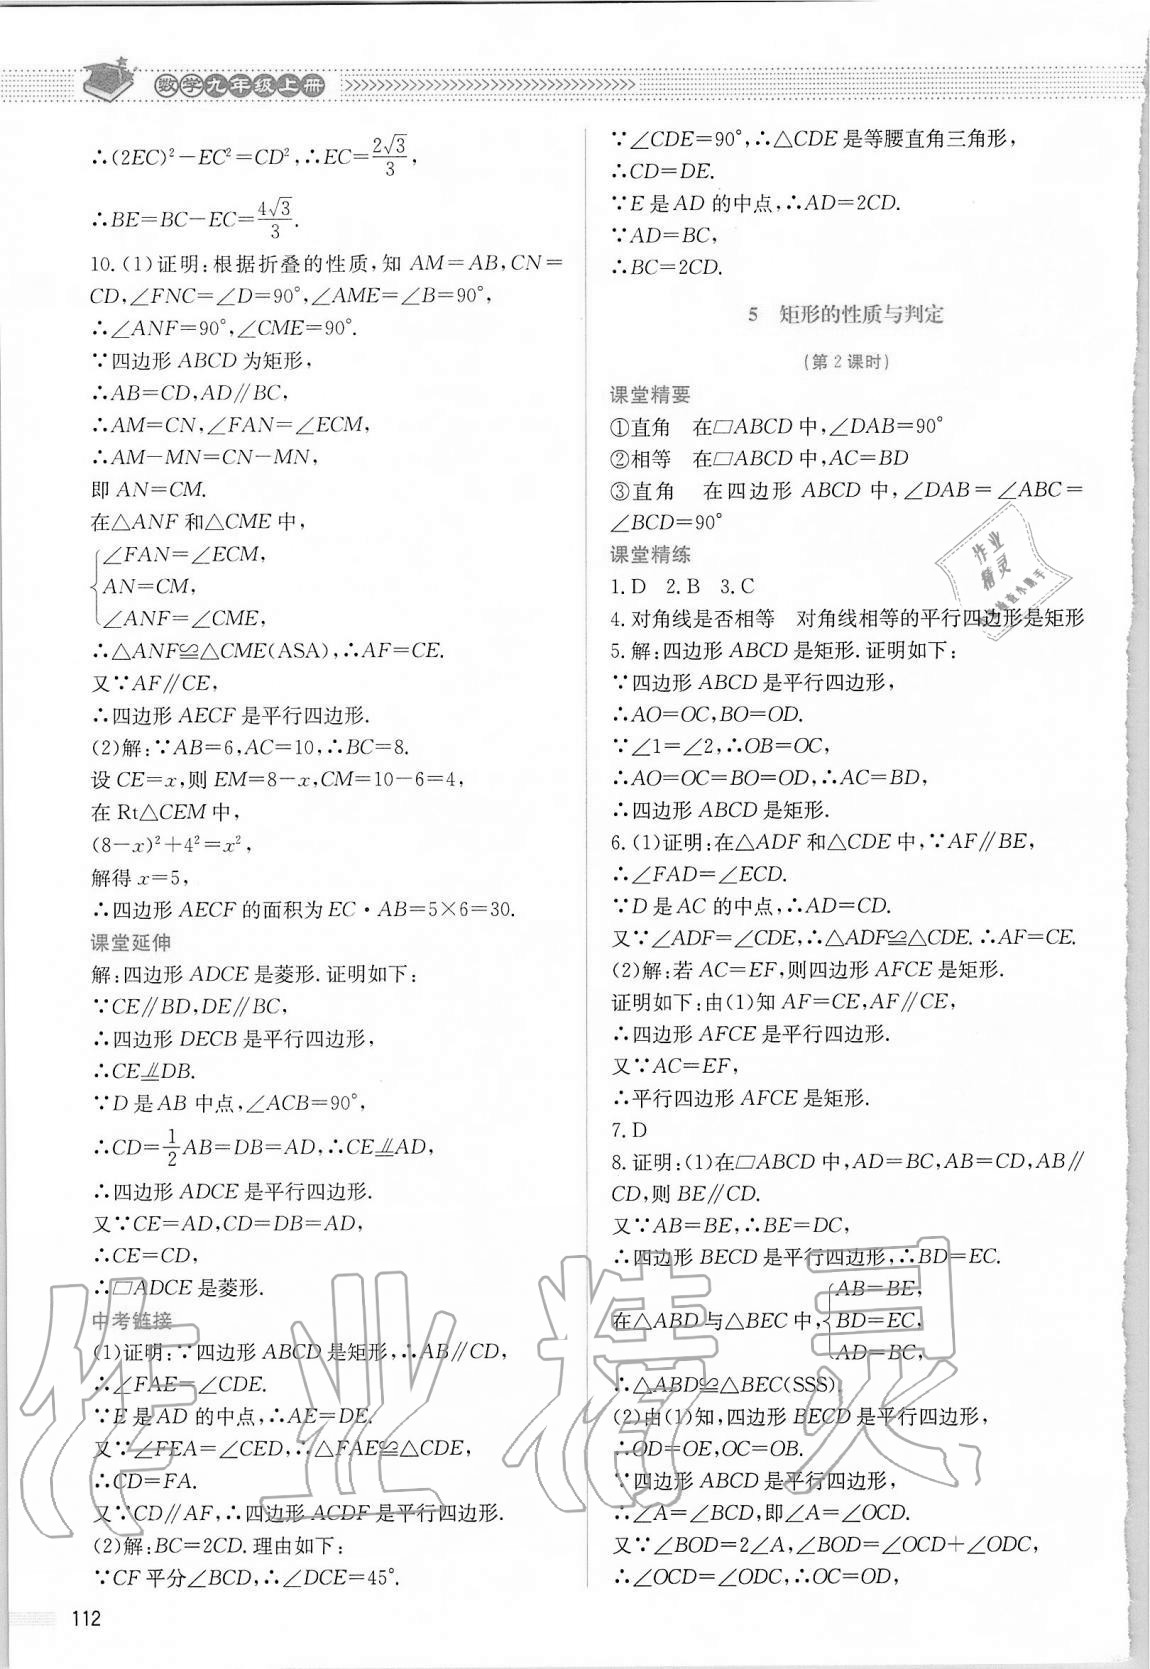 数学九年级上册
∴(2EC)²-EC²=CD²,∴EC=2√3/3,
∴BE=BC-EC=4√3/3.
10.(1)证明:根据折叠的性质,知 AM=AB,CN=
CD,∠FNC=∠D=90°,∠AME=∠B=90°,
∴∠ANF=90°,∠CME=90°.
∵四边形 ABCD 为矩形,
∴AB=CD,AD∥BC,
∴AM=CN,∠FAN=∠ECM,
∴AM-MN=CN-MN,
即 AN=CM.
在△ANF 和△CME 中,
∠FAN=∠ECM,
AN=CM,
∠ANF=∠CME,
∴△ANF≌△CME(ASA),∴AF=CE.
又∵AF∥CE,
∴四边形 AECF 是平行四边形.
(2)解:∵AB=6,AC=10,∴BC=8.
设 CE=x,则 EM=8-x,CM=10-6=4,
在 Rt△CEM 中,
(8-x)²+4²=x²,
解得 x=5,
∴四边形 AECF 的面积为 EC·AB=5×6=30.
课堂延伸
解:四边形 ADCE 是菱形.证明如下:
∵CE∥BD,DE∥BC,
∴四边形 DECB 是平行四边形,
∴CE⫫DB.
∵D 是 AB 中点,∠ACB=90°,
∴CD=1/2AB=DB=AD,∴CE⫫AD,
∴四边形 ADCE 是平行四边形.
又∵CE=AD,CD=DB=AD,
∴CE=CD,
∴▱ADCE 是菱形.
中考链接
(1)证明:∵四边形 ABCD 是矩形,∴AB∥CD,
∴∠FAE=∠CDE.
∵E 是 AD 的中点,∴AE=DE.
又∵∠FEA=∠CED,∴△FAE≌△CDE,
∴CD=FA.
又∵CD∥AF,∴四边形 ACDF 是平行四边形.
(2)解:BC=2CD.理由如下:
∵CF 平分∠BCD,∴∠DCE=45°.
∵∠CDE=90°,∴△CDE 是等腰直角三角形,
∴CD=DE.
∵E 是 AD 的中点,∴AD=2CD.
∵AD=BC,
∴BC=2CD.
5 矩形的性质与判定
(第 2 课时)
课堂精要
①直角 在▱ABCD 中,∠DAB=90°
②相等 在▱ABCD 中,AC=BD
③直角 在四边形 ABCD 中,∠DAB=∠ABC=
∠BCD=90°
课堂精练
1.D 2.B 3.C
4.对角线是否相等 对角线相等的平行四边形是矩形
5.解:四边形 ABCD 是矩形.证明如下:
∵四边形 ABCD 是平行四边形,
∴AO=OC,BO=OD.
∵∠1=∠2,∴OB=OC,
∴AO=OC=BO=OD,∴AC=BD,
∴四边形 ABCD 是矩形.
6.(1)证明:在△ADF 和△CDE 中,∵AF∥BE,
∴∠FAD=∠ECD.
∵D 是 AC 的中点,∴AD=CD.
又∵∠ADF=∠CDE,∴△ADF≌△CDE.∴AF=CE.
(2)解:若 AC=EF,则四边形 AFCE 是矩形.
证明如下:由(1)知 AF=CE,AF∥CE,
∴四边形 AFCE 是平行四边形.
又∵AC=EF,
∴平行四边形 AFCE 是矩形.
7.D
8.证明:(1)在▱ABCD 中,AD=BC,AB=CD,AB∥
CD,则 BE∥CD.
又∵AB=BE,∴BE=DC,
∴四边形 BECD 是平行四边形,∴BD=EC.
AB=BE,
在△ABD 与△BEC 中,BD=EC,
AD=BC,
∴△ABD≌△BEC(SSS)
(2)由(1)知,四边形 BECD 是平行四边形,
∴OD=OE,OC=OB.
∵四边形 ABCD 是平行四边形,
∴∠A=∠BCD,即∠A=∠OCD.
又∵∠BOD=2∠A,∠BOD=∠OCD+∠ODC,
∴∠OCD=∠ODC,∴OC=OD,
112
作业精灵
作业
精灵